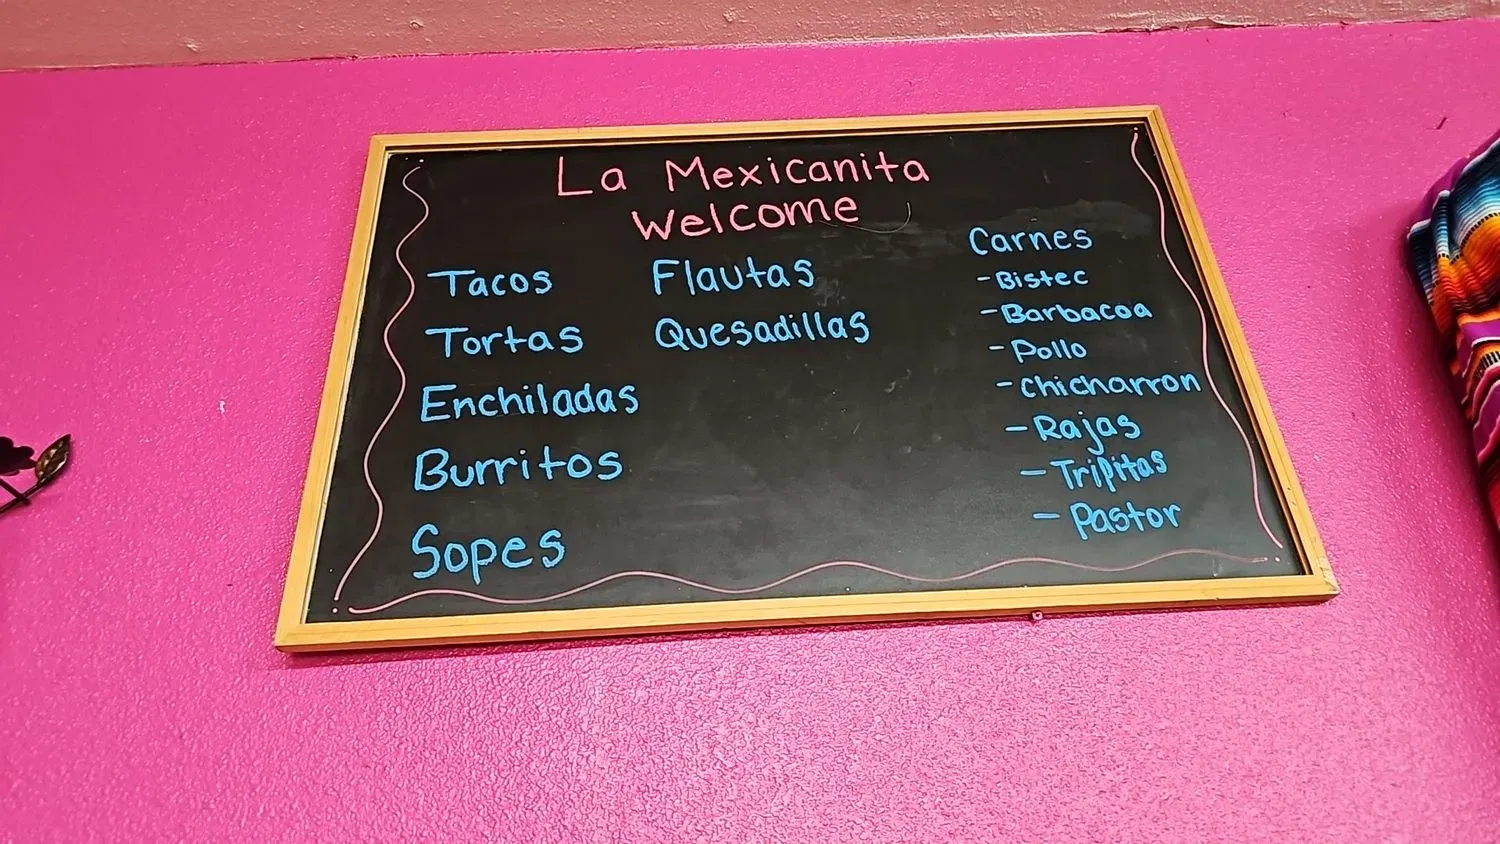 La Mexicanita
Welcome
Tacos
Tortas
Enchiladas
Burritos
Sopes
Flautas
Quesadillas
Carnes
- Bistec
- Barbacoa
- Pollo
- Chicharron
- Rajas
- Tripitas
- Pastor